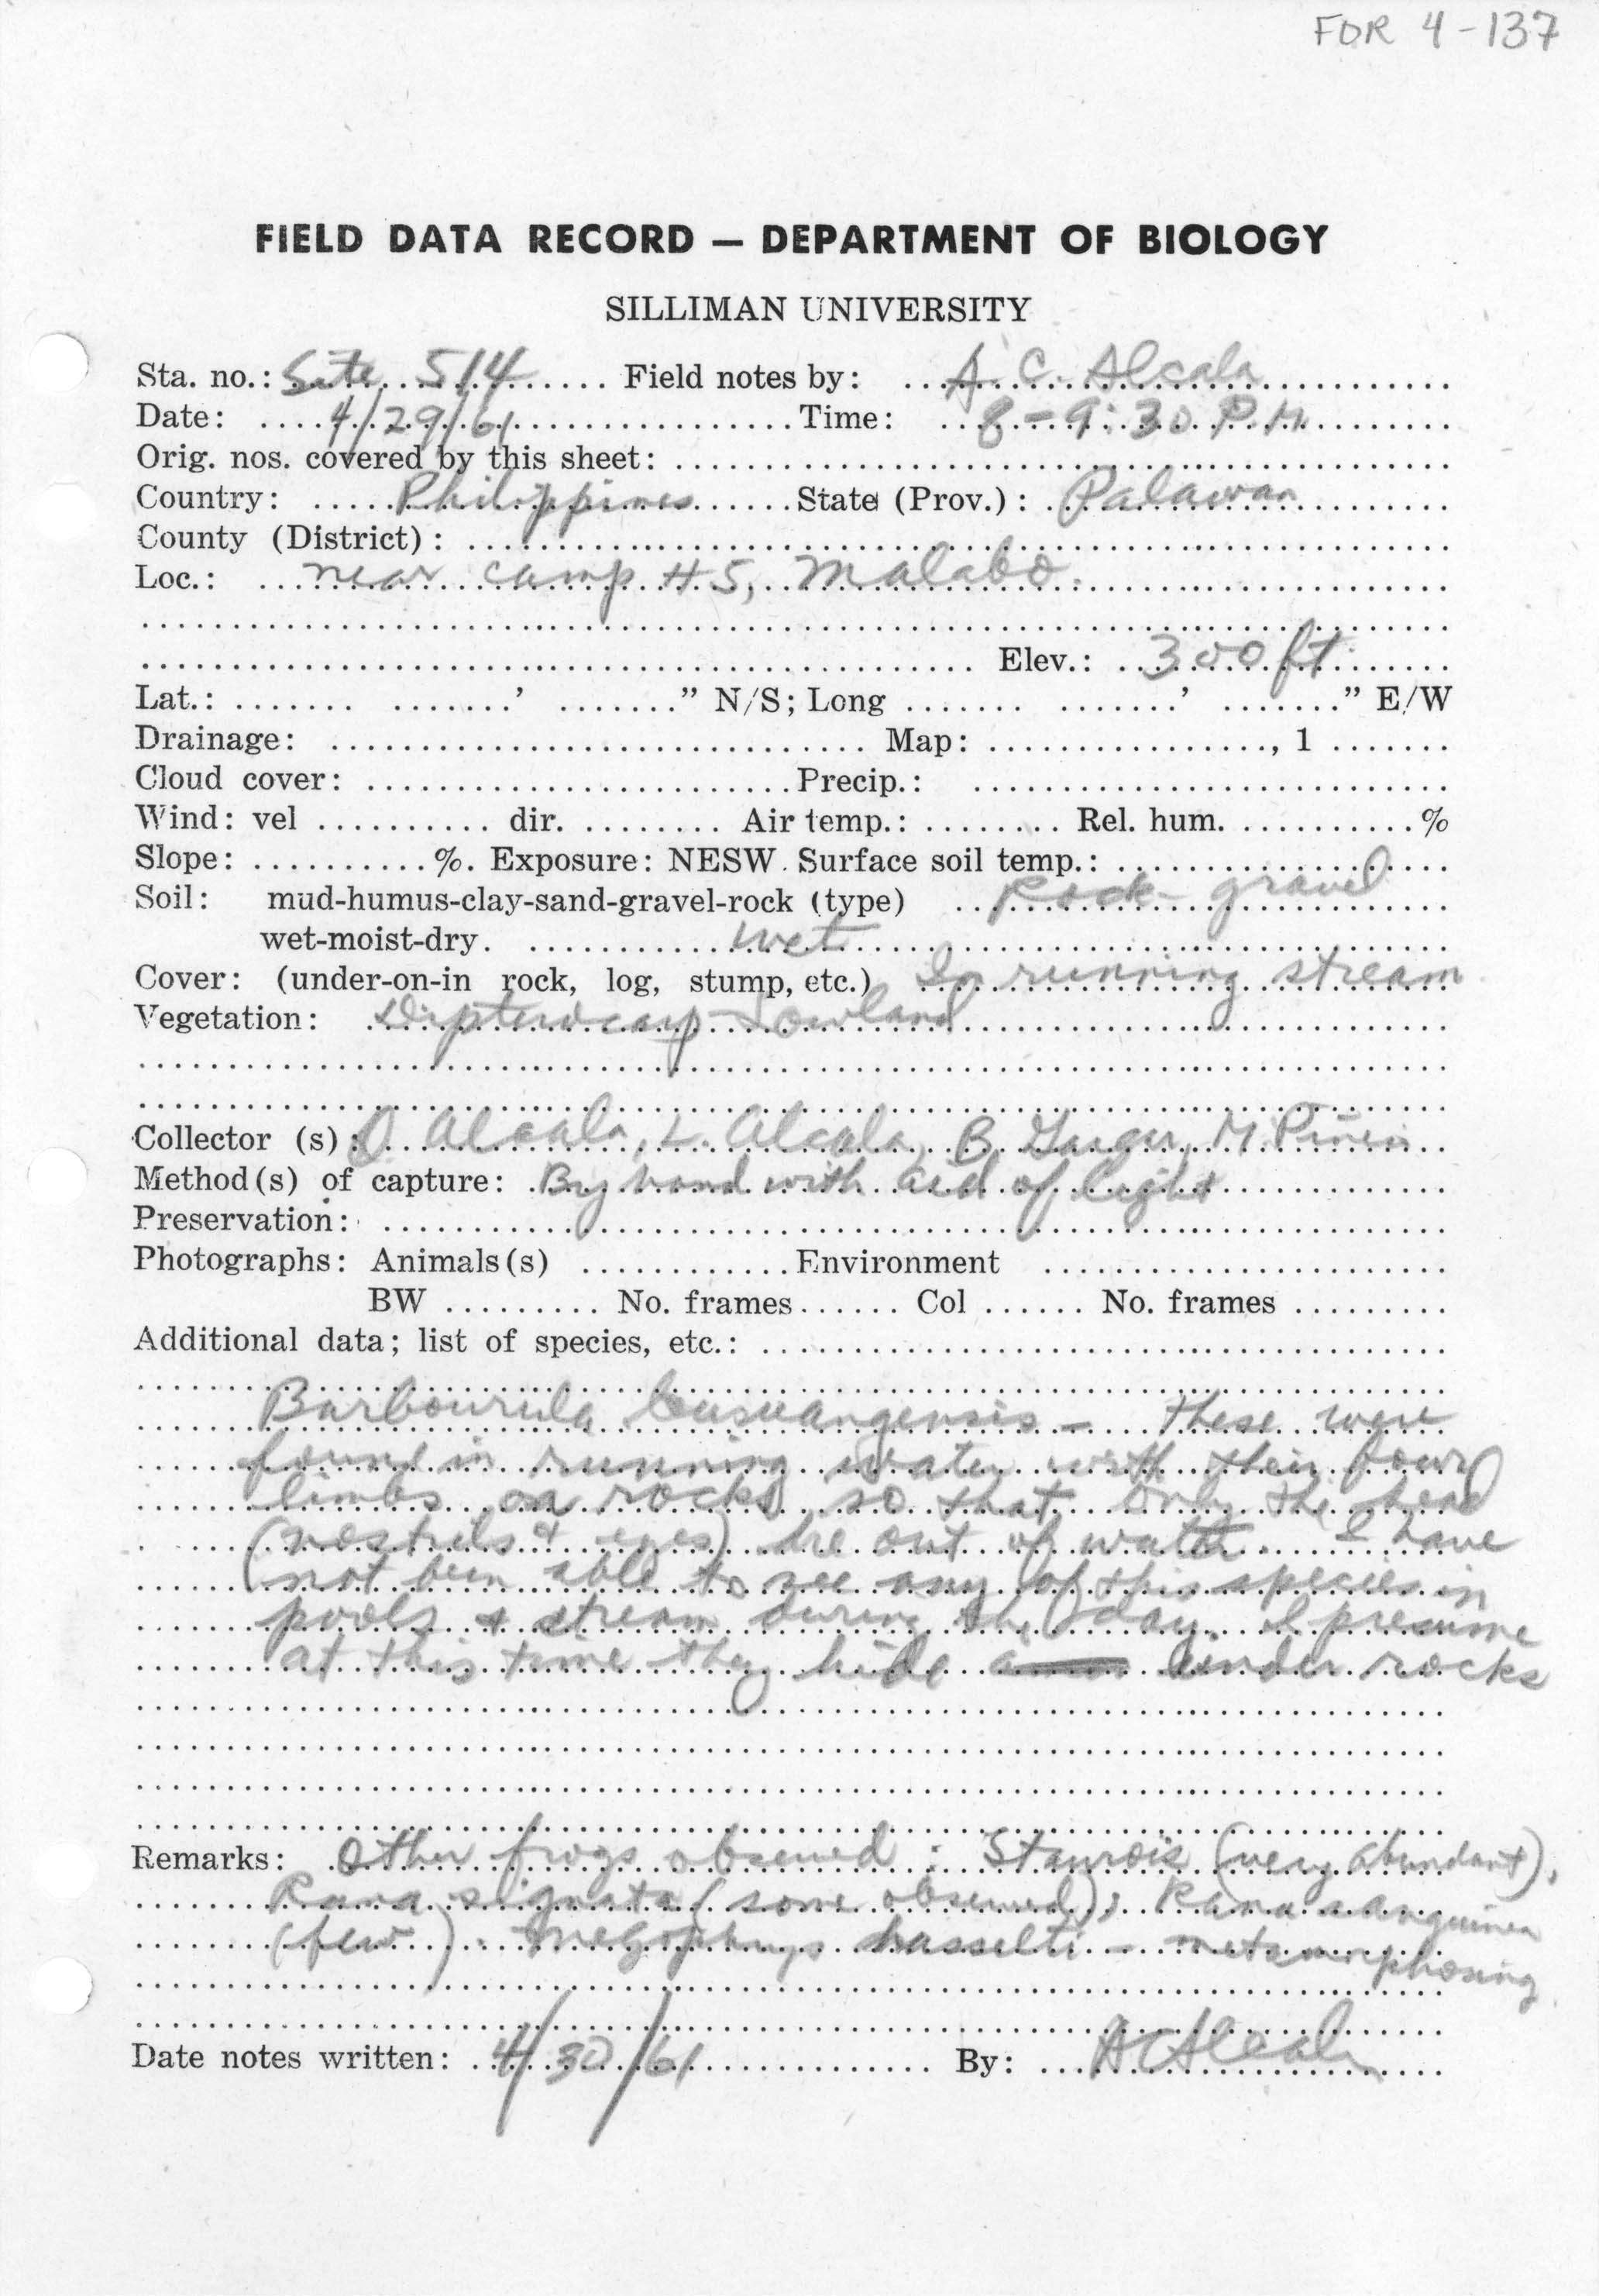 FDR 4-137
FIELD DATA RECORD — DEPARTMENT OF BIOLOGY
SILLIMAN UNIVERSITY
Sta. no.: Site 514 Field notes by: A. C. Alcala
Date: 4/29/61 Time: 8-9:30 P.M.
Orig. nos. covered by this sheet:
Country: Philippines State (Prov.): Palawan
County (District):
Loc.: near camp #5, Malabo.
Elev.: 300 ft.
Lat.: ' " N/S; Long ' " E/W
Drainage: Map: , 1
Cloud cover: Precip.:
Wind: vel dir. Air temp.: Rel. hum. %
Slope: %. Exposure: NESW. Surface soil temp.:
Soil: mud-humus-clay-sand-gravel-rock (type) Rock-gravel
wet-moist-dry. wet
Cover: (under-on-in rock, log, stump, etc.) In running stream
Vegetation: Dipterocarp Lowland
Collector (s): Alcala, L. Alcala, B. M.
Method(s) of capture: By hand with aid of light
Preservation:
Photographs: Animals(s) Environment
BW No. frames Col No. frames
Additional data; list of species, etc.:
Barbourula busuangensis - These were
found in running water with their four
limbs on rocks so that only the head
(nostrils & eyes) are out of water. I have
not been able to see any of this species in
pools & stream during the day. I presume
at this time they hide under rocks
Remarks: Other frogs observed: Staurois (very abundant),
Rana signata (some observed); Rana sanguinea
(few). Megophrys hasselti - metamorphosing
Date notes written: 4/30/61 By: ACAlcala